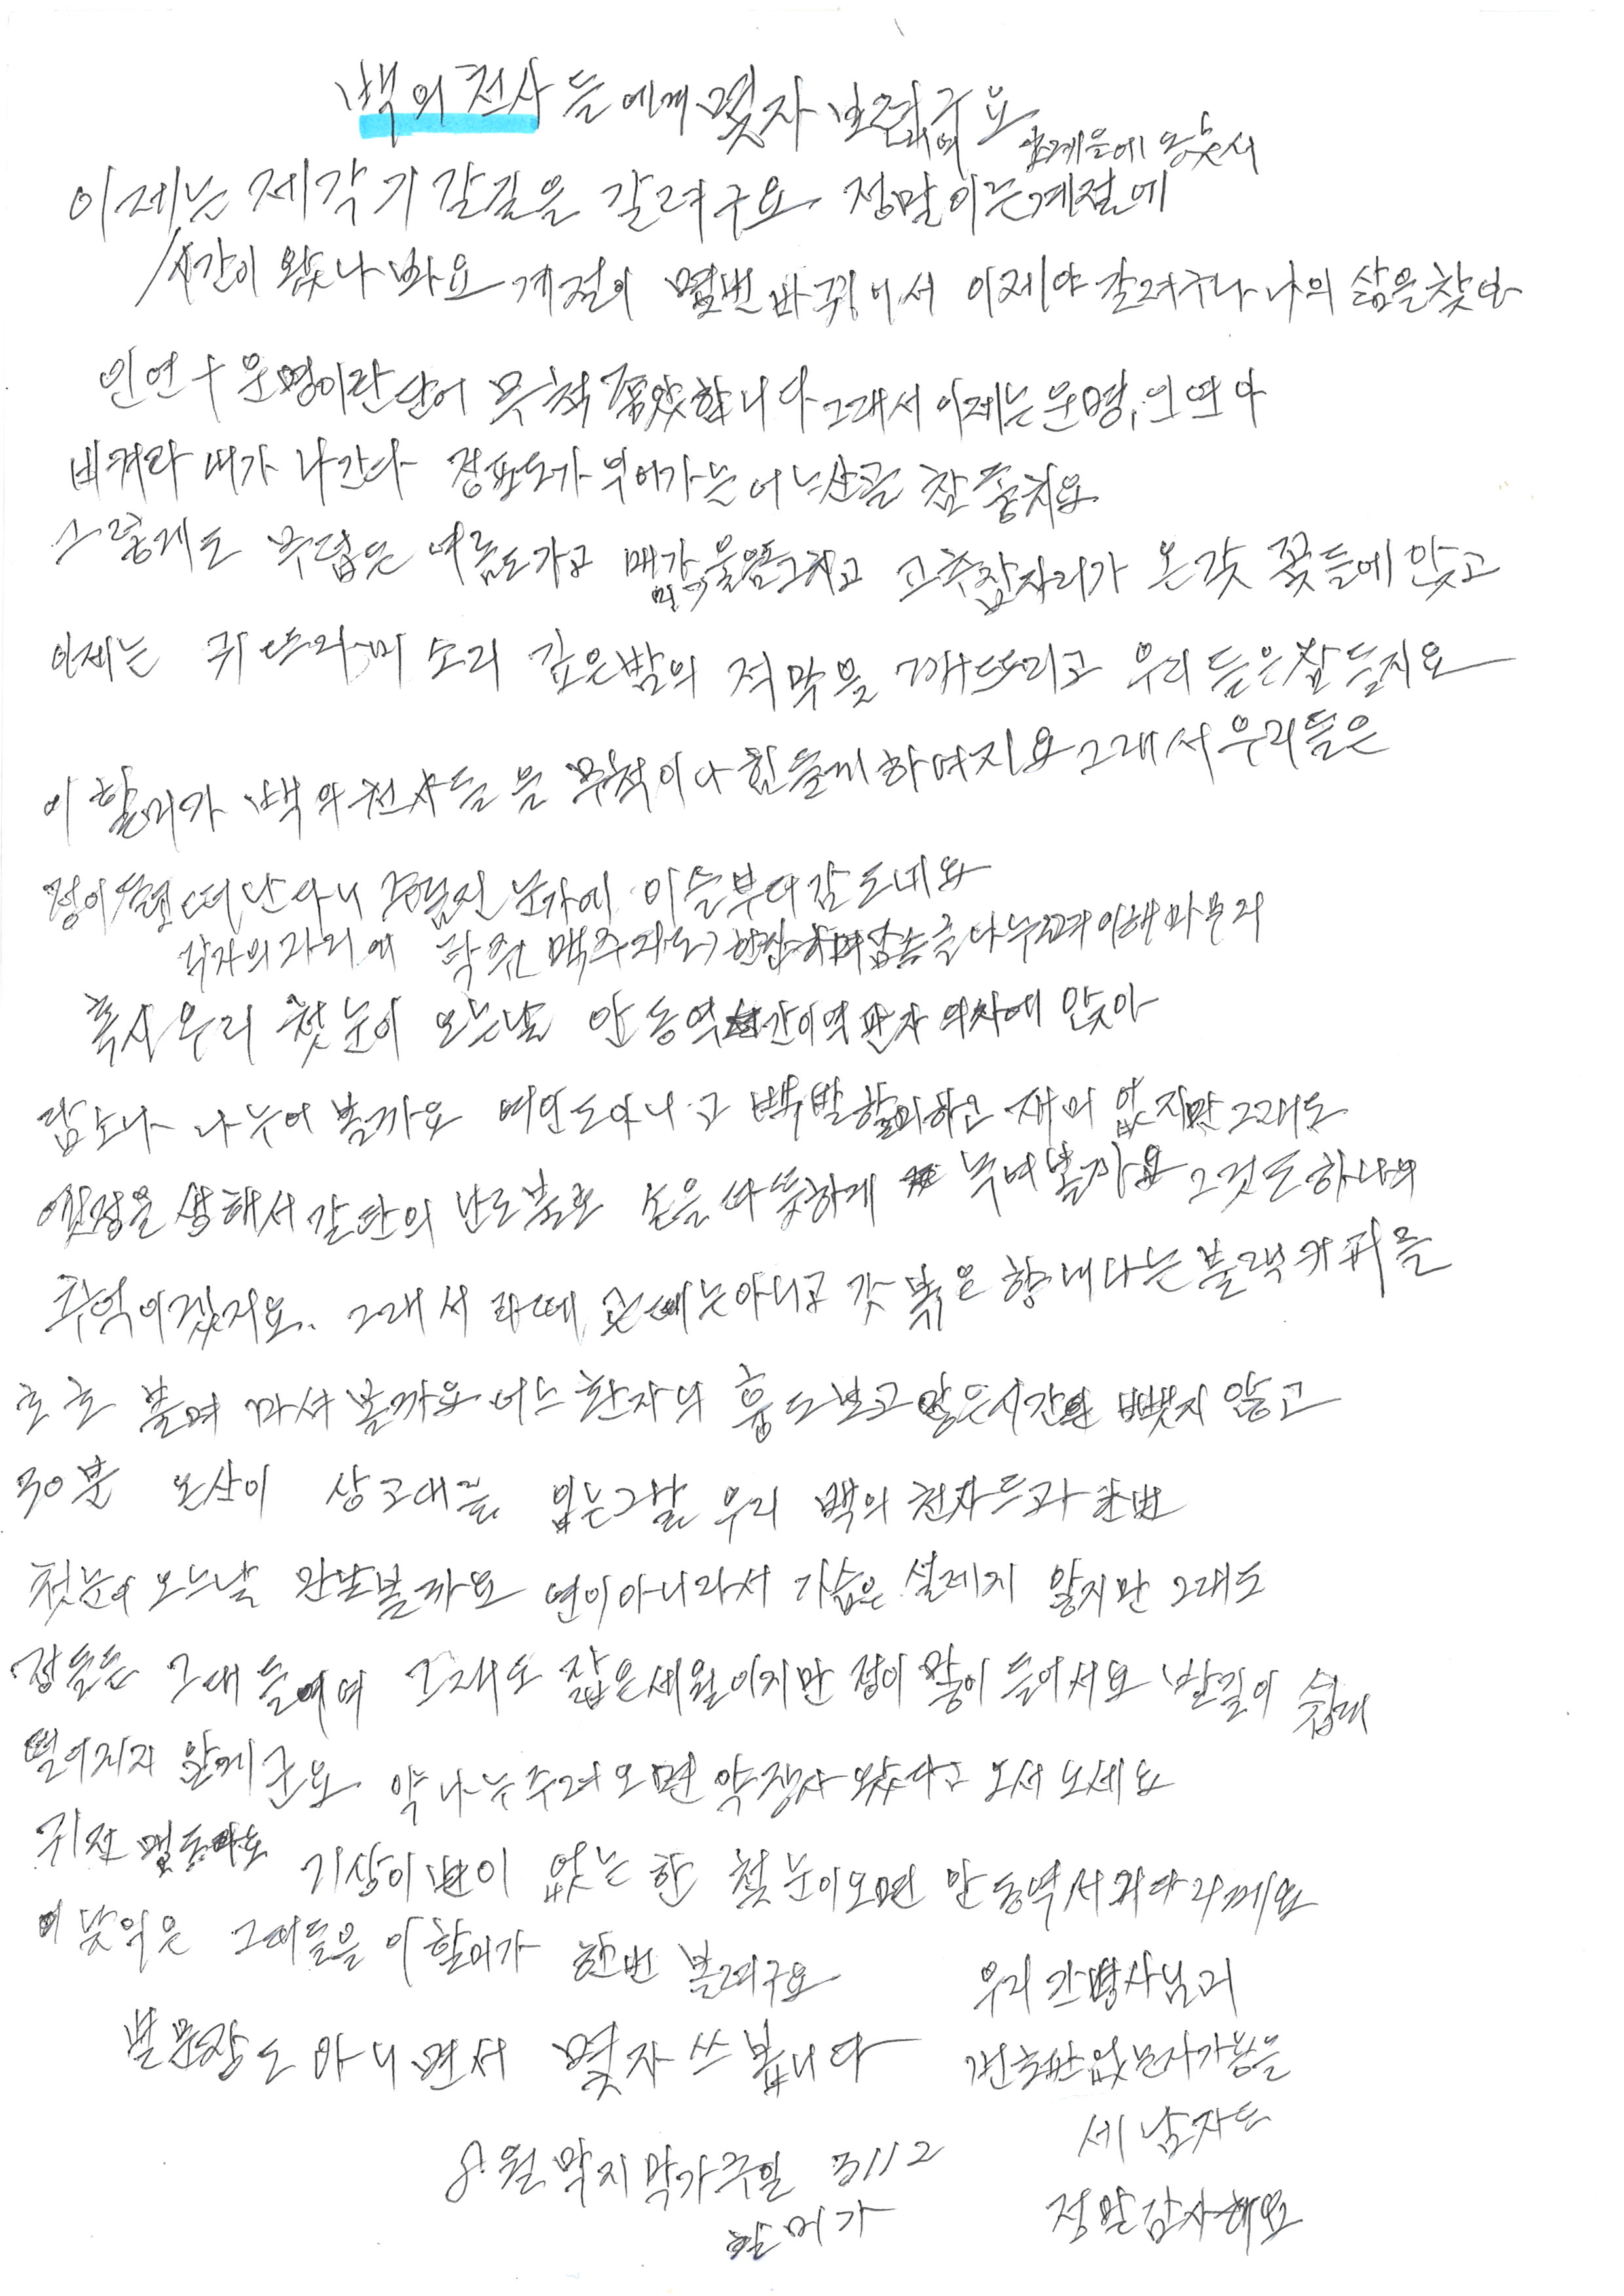 백의 천사들에게 몇자 보렵구요
이제는 제각기 갈길을 갈려구요 정말이는 계절에
시간이 왔나 봐요 계절이 몇번 바뀌어서 이제야 갈려구나 나의 삶을 찾아
인연 + 운명이란 단어 무척 좋았합니다 그래서 이제는 운명, 인연아
비켜라 내가 나간다 청포도가 익어가는 어느 산골 참 좋치요
그렇게도 무덥은 여름도 가고 매미가 울음 그치고 고추잠자리가 온갖 꽃들에 앉고
이제는 귀뜨라미 소리 깊은 밤의 적막을 깨뜨리고 우리들은 잠들지요
이 할머가 백의 천사들을 무척이나 힘들게 하여지요 그래서 우리들은
정이 들어 떠난다니 주름진 눈가에 이슬부터 감도네요
각자의 자리에 맥주라도 한잔 하며 담소를 나누고 이해 마무리
혹시 우리 첫눈이 오는날 안동역 간이역 판자 의자에 앉아
담소나 나누어 볼까요 여인도 아니고 백발 할머하고 재미 없지만 그래도
옛정을 생해서 갈탄의 난로불로 손을 따뜻하게 녹여볼까요 그것도 하나의
추억이겠지요.. 그래서 라떼, 라떼는 아니고 갓 볶은 향내나는 블랙커피를
호호 불며 마셔 볼까요 어느 환자의 흉도 보고 많은 시간을 뺏지 않고
30분 온산이 상고대를 입는 그날 우리 백의 천사들과 한번
첫눈이 오느날 만나볼까요 연이 아니라서 가슴은 설레지 않지만 그래도
정들은 그대들이여 그래도 짧은 세월이지만 정이 많이 들어서요 발길이 쉽대
떨어지지 않게군요 약 나누주러 오면 약장사 왔다고 오서 오세요
귀전 맴돌아요 기상이변이 없는 한 첫눈이 오면 안동역서 기다리께요
이 낯익은 그대들을 이 할머가 한번 볼려구요
별 문장도 아니면서 몇자 쓰봅니다
8월 막지막 가주일 3112
할머가
우리 간병사님과
세 남자도
정말 감사해요